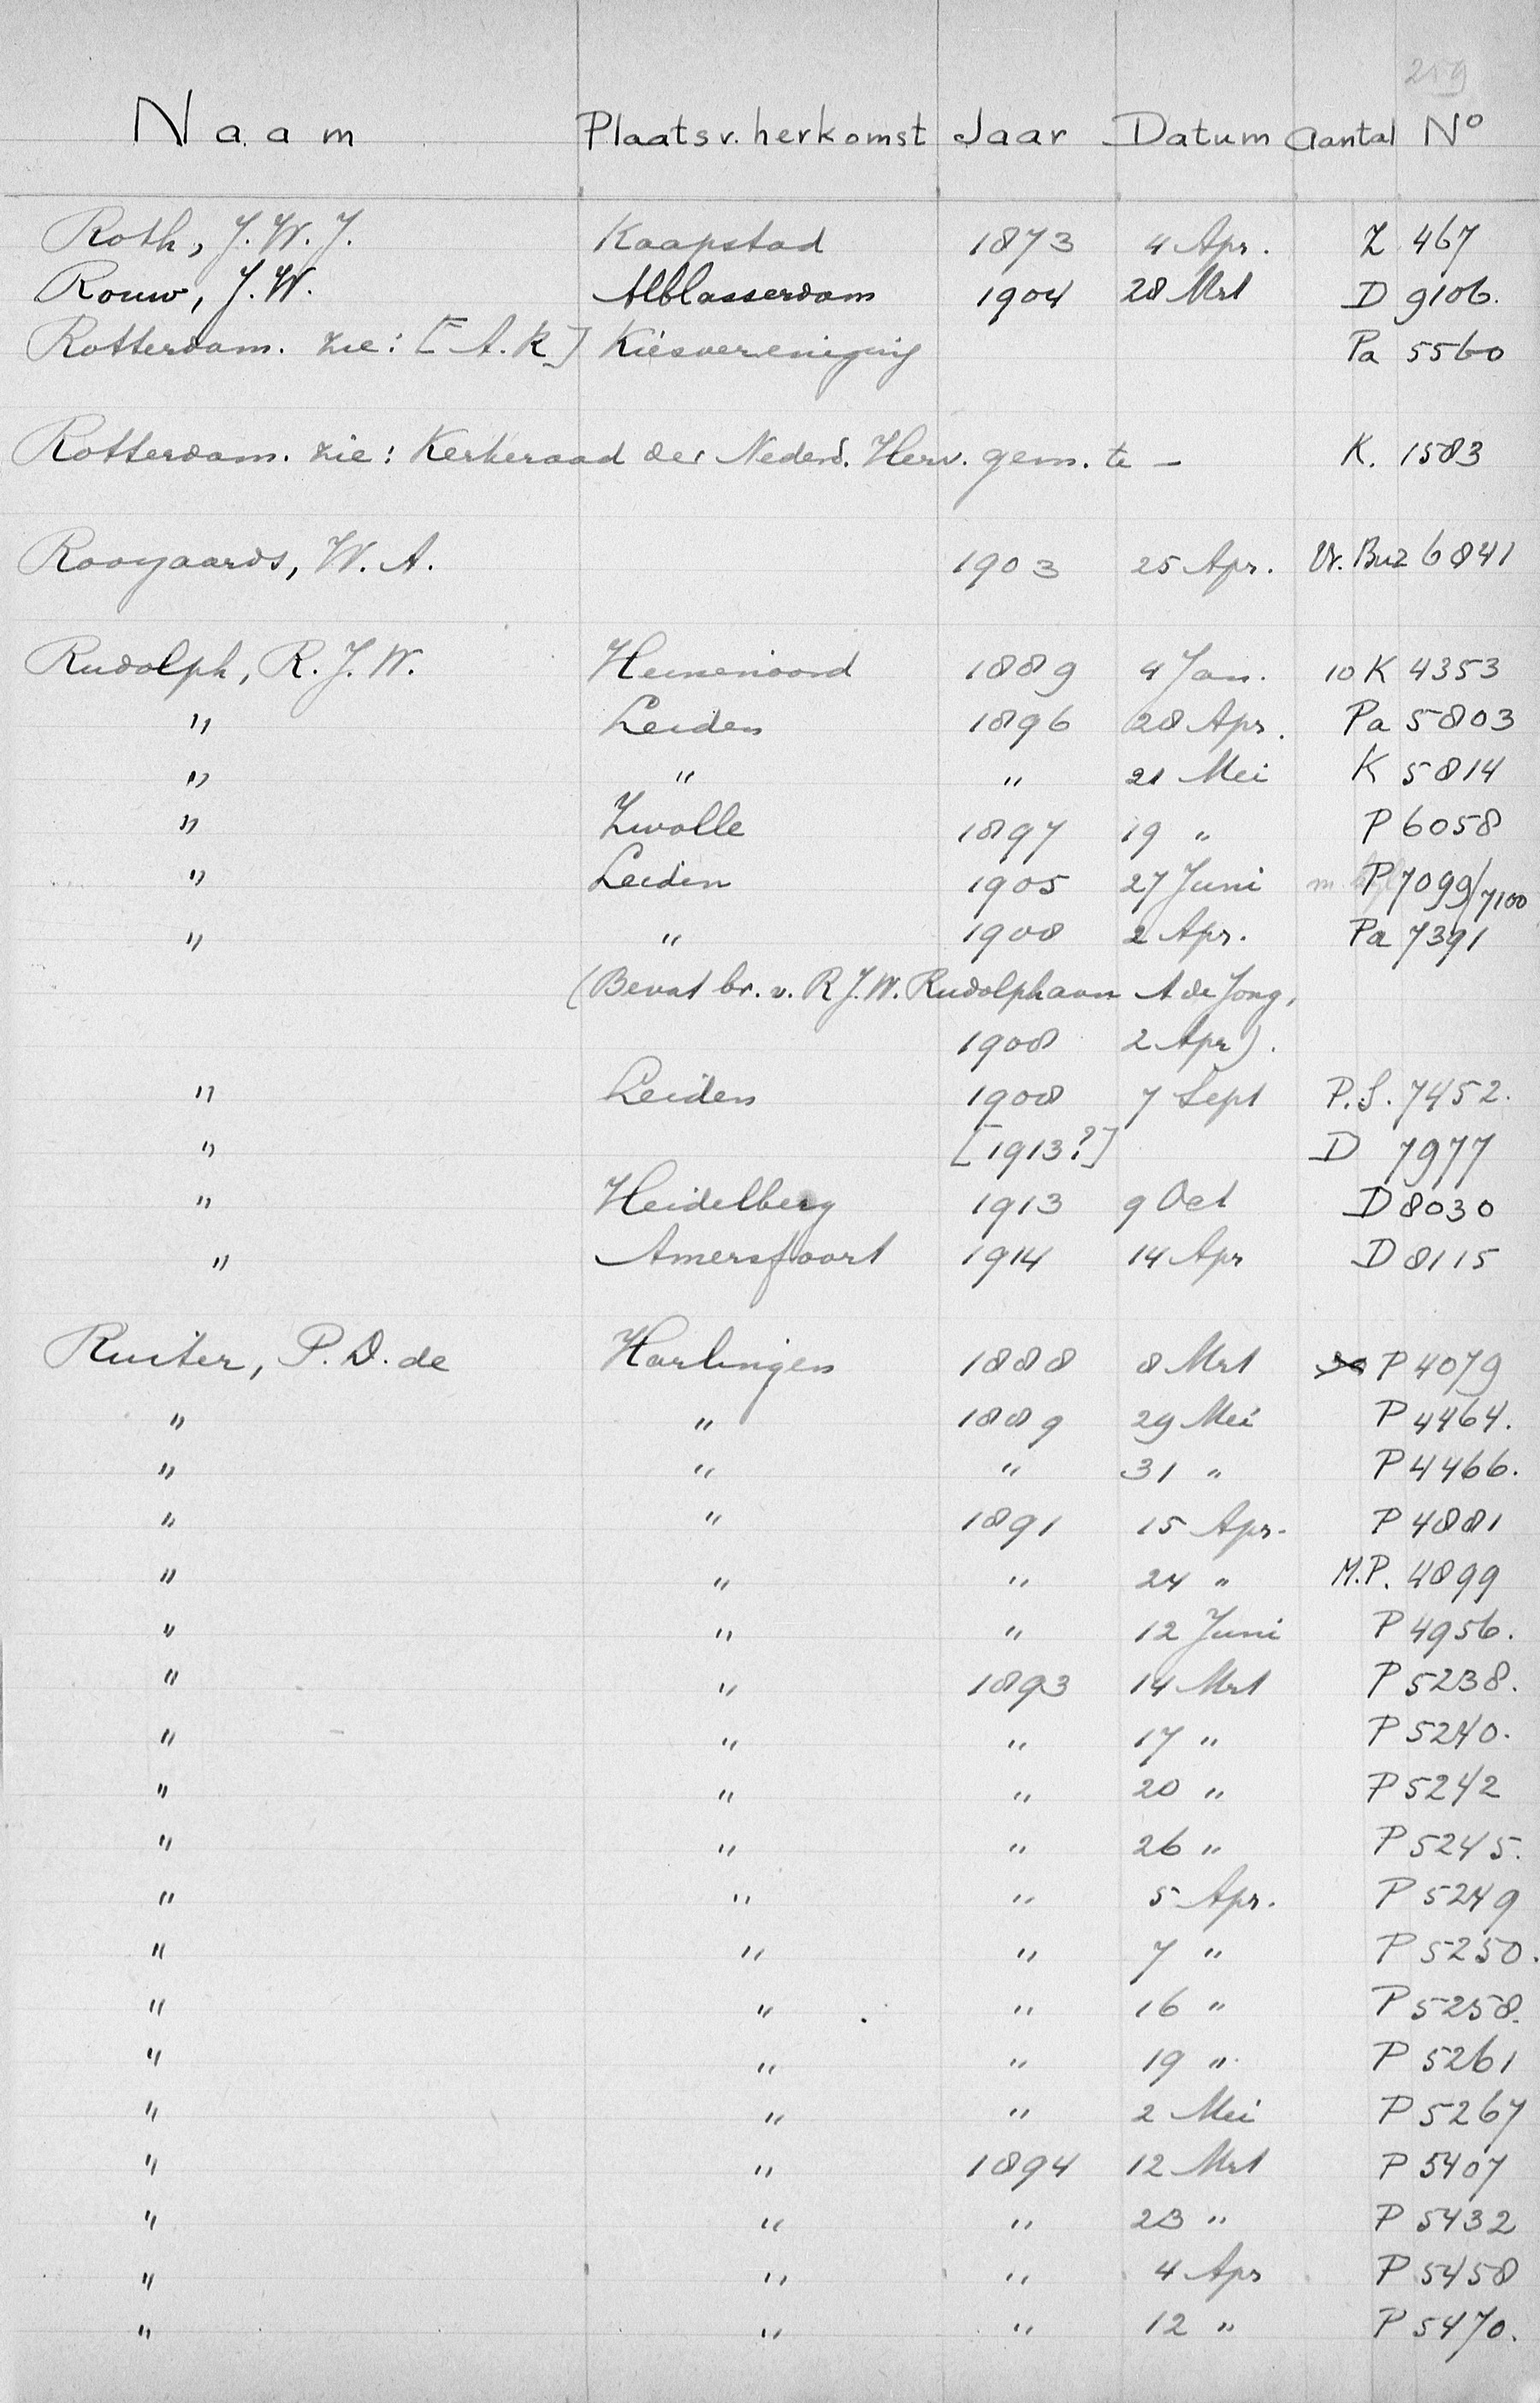 259
Naam Plaats v. herkomst Jaar Datum Aantal No
Roth, J. W. J. Kaapstad 1873 4 Apr. Z 467
Rouw, J. W. Alblasserdam 1904 28 Mrt D 9106.
Rotterdam. zie: [A. R.] Kiesvereniging Pa 5560
Rotterdam. zie: Kerkeraad der Nederd. Herv. gem. te — K. 1583
Rooyaards, W. A. 1903 25 Apr. 6841
Rudolph, R. J. W. Heinenoord 1889 4 Jan. 10 K 4353
" Leiden 1896 28 Apr. Pa 5803
" " " 21 Mei K 5814
" Zwolle 1897 19 " P 6058
" Leiden 1905 27 Juni P 7099/7100
" " 1908 2 Apr. Pa 7391
(Bevat br. v. R. J. W. Rudolph aan A de Jong,
1908 2 Apr).
" Leiden 1908 7 Sept P. S. 7452.
" [1913?] D 7977
" Heidelberg 1913 9 Oct D 8030
" Amersfoort 1914 14 Apr D 8115
Ruiter, P. D. de Harlingen 1888 8 Mrt P 4079
" " 1889 29 Mei P 4464.
" " " 31 " P 4466.
" " 1891 15 Apr. P 4881
" " " 24 " M.P. 4899
" " " 12 Juni P 4956.
" " 1893 14 Mrt P 5238.
" " " 17 " P 5240.
" " " 20 " P 5242
" " " 26 " P 5245.
" " " 5 Apr. P 5249
" " " 7 " P 5250.
" " " 16 " P 5258.
" " " 19 " P 5261
" " " 2 Mei P 5267
" " 1894 12 Mrt P 5407
" " " 23 " P 5432
" " " 4 Apr P 5458
" " " 12 " P 5470.